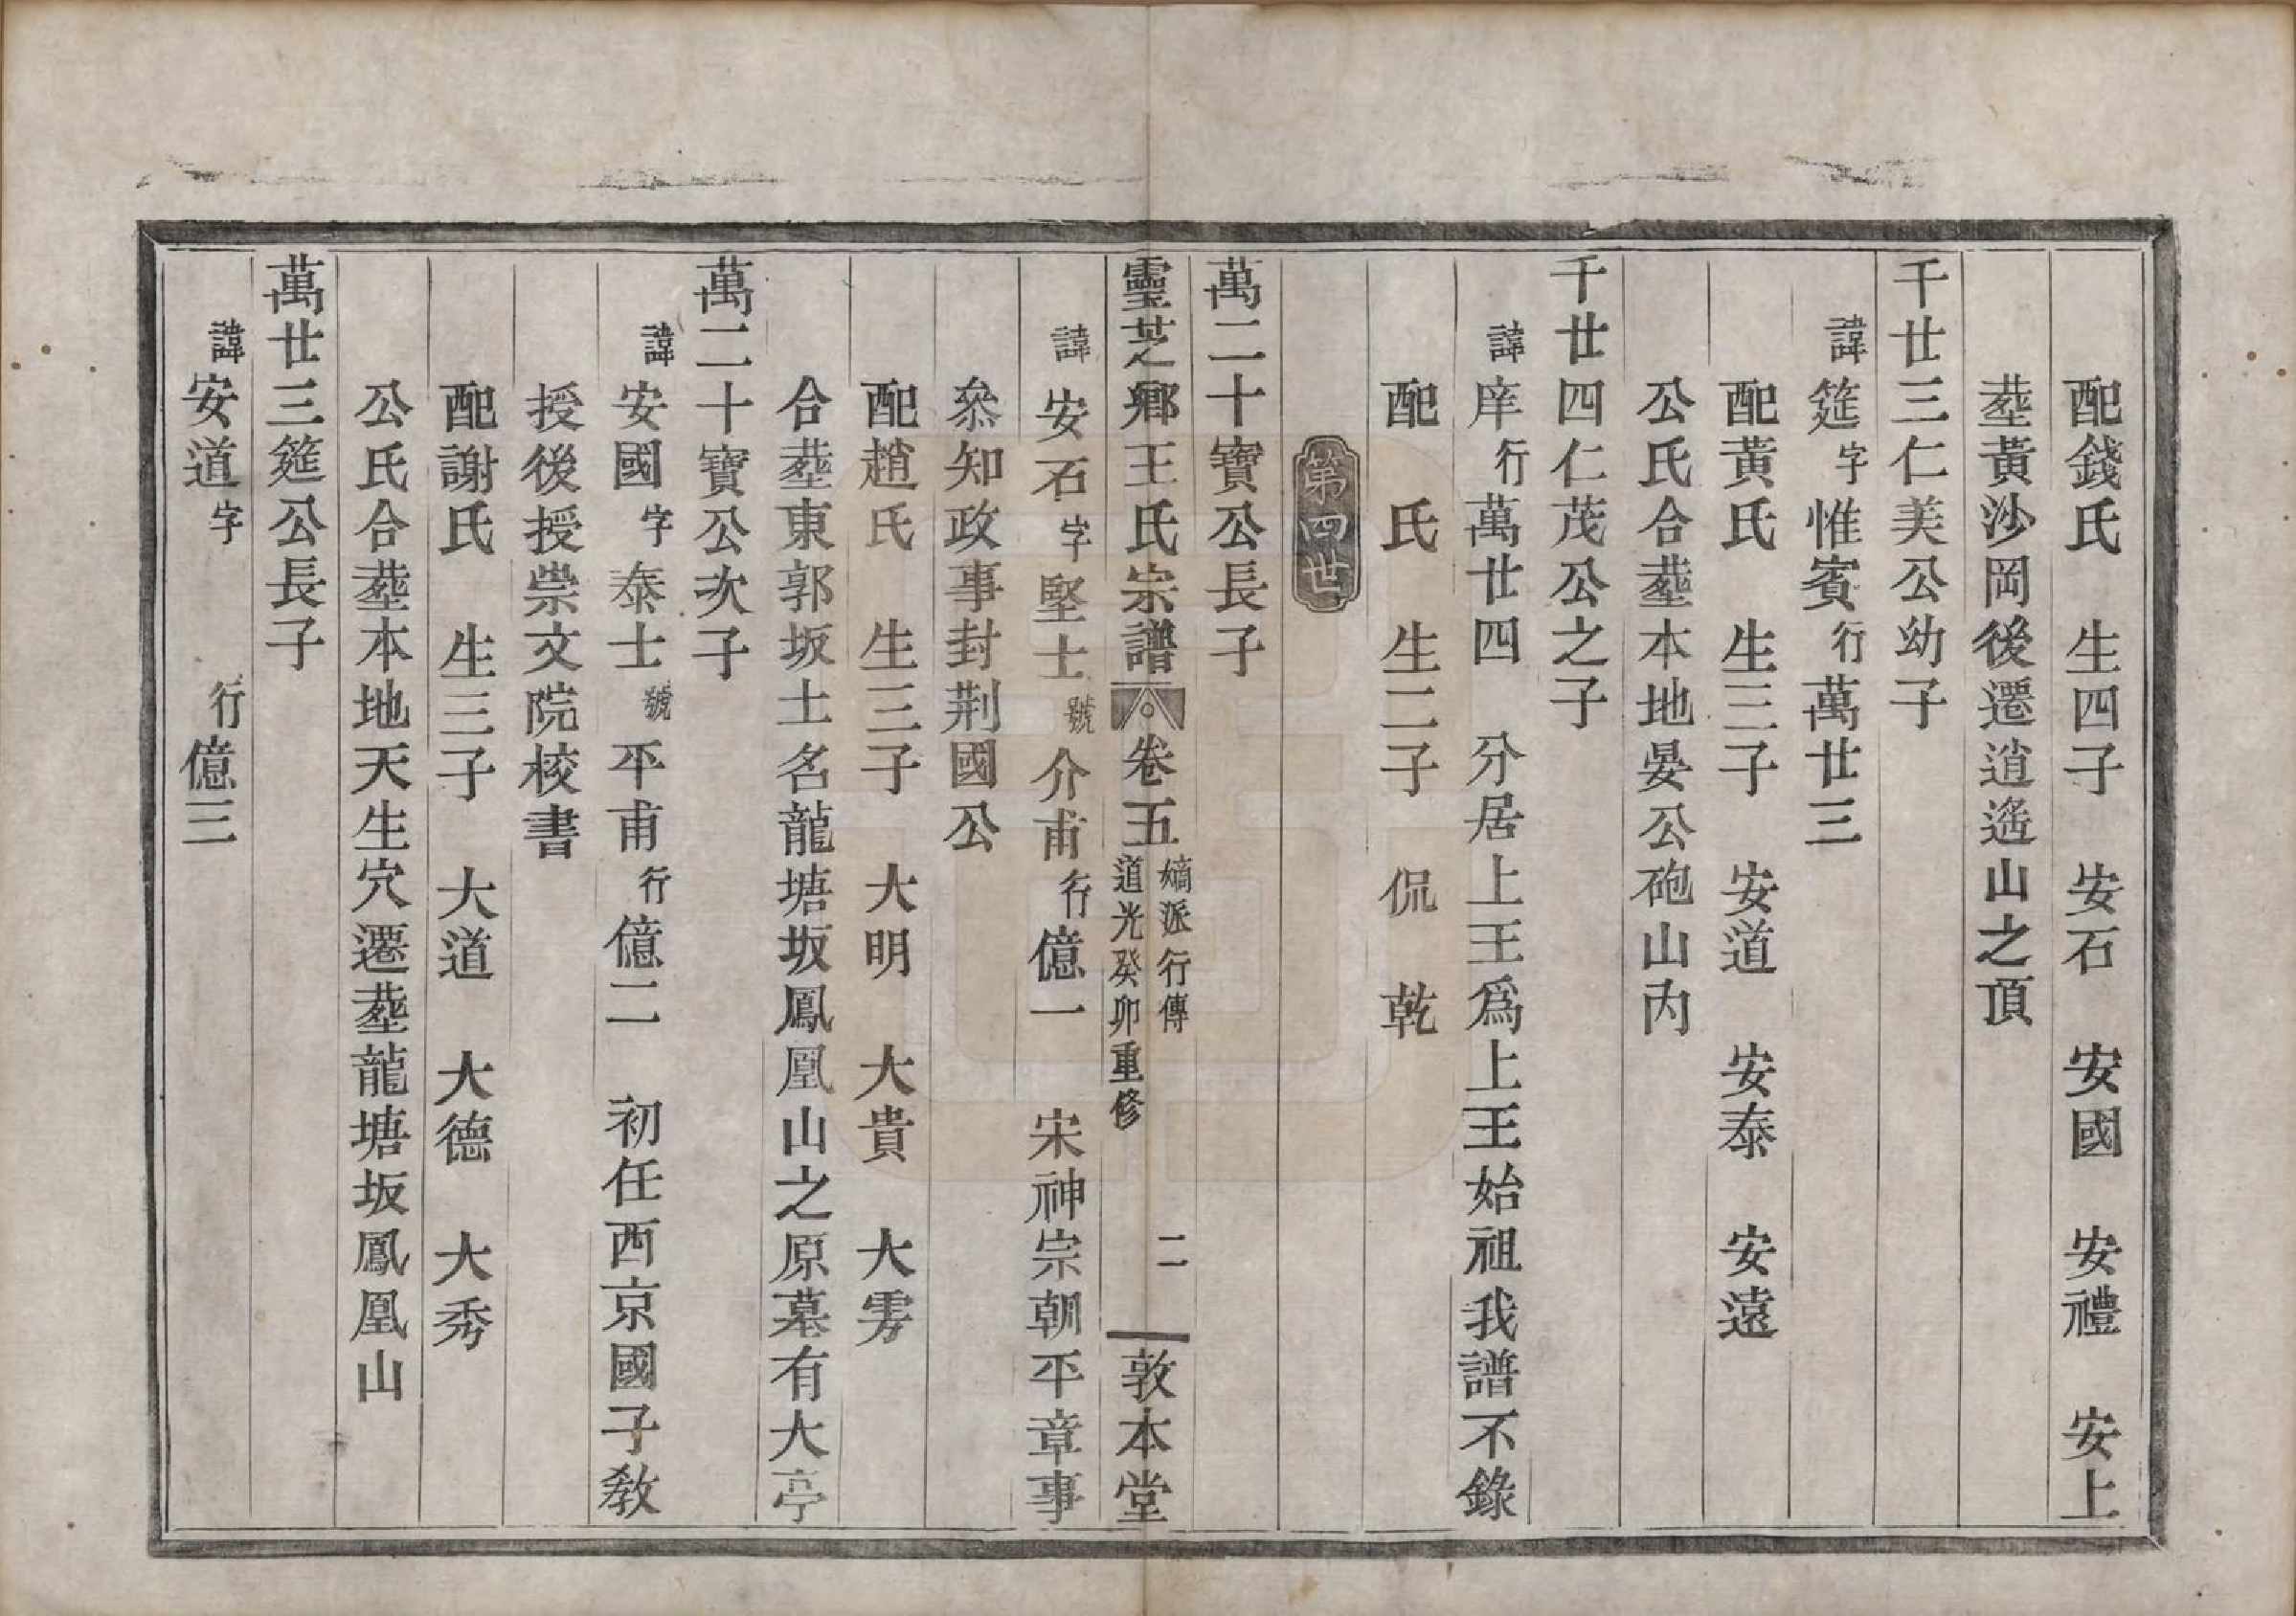 配錢氏　生四子　安石　安國　安禮　安上
塟黃沙岡後遷逍遙山之頂
千廿三仁美公幼子
諱筵字惟賓行萬廿三
配黃氏　生三子　安道　安泰　安遠
公氏合塟本地晏公砲山内
千廿四仁茂公之子
諱庠行萬廿四　分居上王爲上王始祖我譜不錄
配　氏　生二子　侃　乾
第四世
萬二十寶公長子
靈芝鄉王氏宗譜　卷五　嫡派行傳　道光癸卯重修　二　敦本堂
諱安石字堅士號介甫行億一　宋神宗朝平章事
叅知政事封荆國公
配趙氏　生三子　大明　大貴　大雱
合塟東郭坂土名龍塘坂鳳凰山之原墓有大亭
萬二十寶公次子
諱安國字泰士號平甫行億二　初任西京國子敎
授後授崇文院校書
配謝氏　生三子　大道　大德　大秀
公氏合塟本地天生穴遷塟龍塘坂鳳凰山
萬廿三筵公長子
諱安道字　行億三